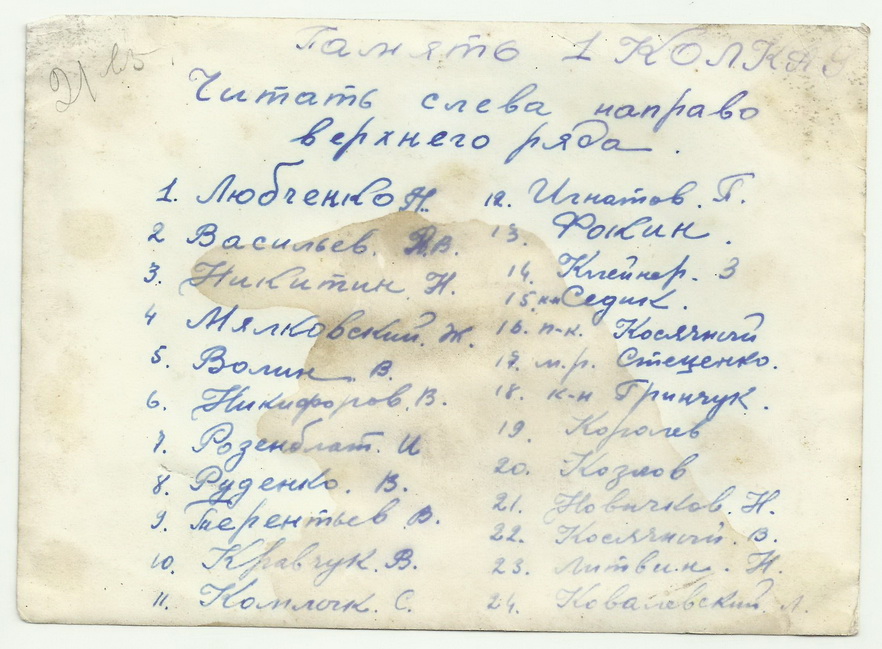 21 15
Память 1 КОЛКАУ
Читать слева направо
верхнего ряда.
1. Любченко Н.
2 Васильев. В.
3. Никитин. Н.
4 Мялковский. Ж.
5. Волин. В.
6. Никифоров. В.
7. Розенблат. И
8. Руденко. В.
9. Терентьев В.
10. Кравчук. В.
11. Комлочк. С.
12. Игнатов. П.
13. Фокин.
14. Клейнер. З
15. Седик.
16. п-к. Косячный
17. м.р. Стеценко.
18. к-н Гринчук.
19. Королев
20. Козлов
21. Новичков. Н.
22. Косячный. В.
23. Литвин. Н.
24. Ковалевский. Л.